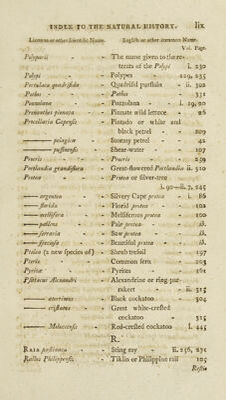 INDEX TO THE NATURAL HISTORY. lix
Linnean or other Scientific Name. English or other common Name.
Vol. Page.
Polyparii - - The name given to the re-
treats of the Polypi i. 230
Polypi - - Polypes - 229, 235
Portulaca quadrifida - Quadrifid purslain - ii. 302
Pothos - - Pothos - 331
Pozzolana - - Pozzolana - i. 19, 20
Prenanthes pinnata - Pinnate wild lettuce - 26
Procellaria Capensis - Pintado or white and
black petrel - 209
—— pelagica - Stormy petrel - 42
—— puffinensis - Shear-water - 197
Procris - - Procris - 259
Portlandia grandiflora - Great-flowered Portlandia ii. 510
Protea - - Protea or silver-tree
i. 90—ii. 7, 245
—— argentea - Silvery Cape protea - i. 86
—— florida - Florid protea - 102
—— mellifera - Melliferous protea - 100
—— pallens - Pale protea - ib.
—— serraria - Saw protea - ib.
—— speciosa - Beautiful protea - ib.
Ptelea (a new species of) - Shrub trefoil - 197
Pteris - - Common fern - 205
Pyritæ - - Pyrites - 161
Psittacus Alexandri - Alexandrine or ring par-
rakeet - ii. 317
—— aterrimus - Black cockatoo - 304
—— cristatus - Great white-crested
cockatoo - 315
—— Moluccensis - Red-crested cockatoo i. 445
R.
RAIA pastinaca - Sting ray ii. 256,
Rallus Philippensis - Tiklin or Philippine rail 105